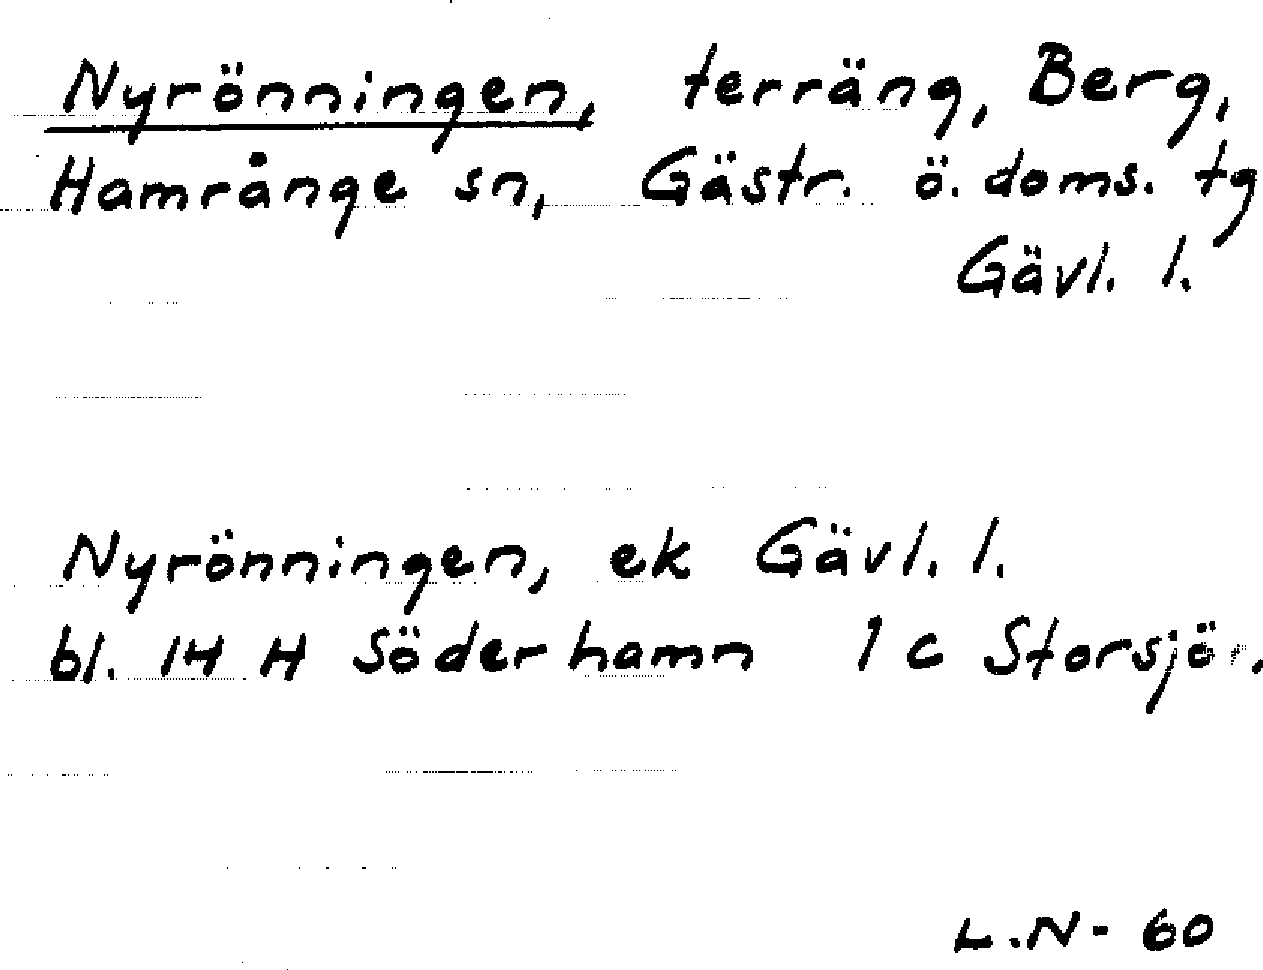 Nyrönningen, terräng, Berg,
Hamrånge sn, Gästr. ö. doms. tg
Gävl. l.
Nyrönningen, ek Gävl. l.
bl. 14 H Söderhamn 1 c Storsjör.
L.N- 60